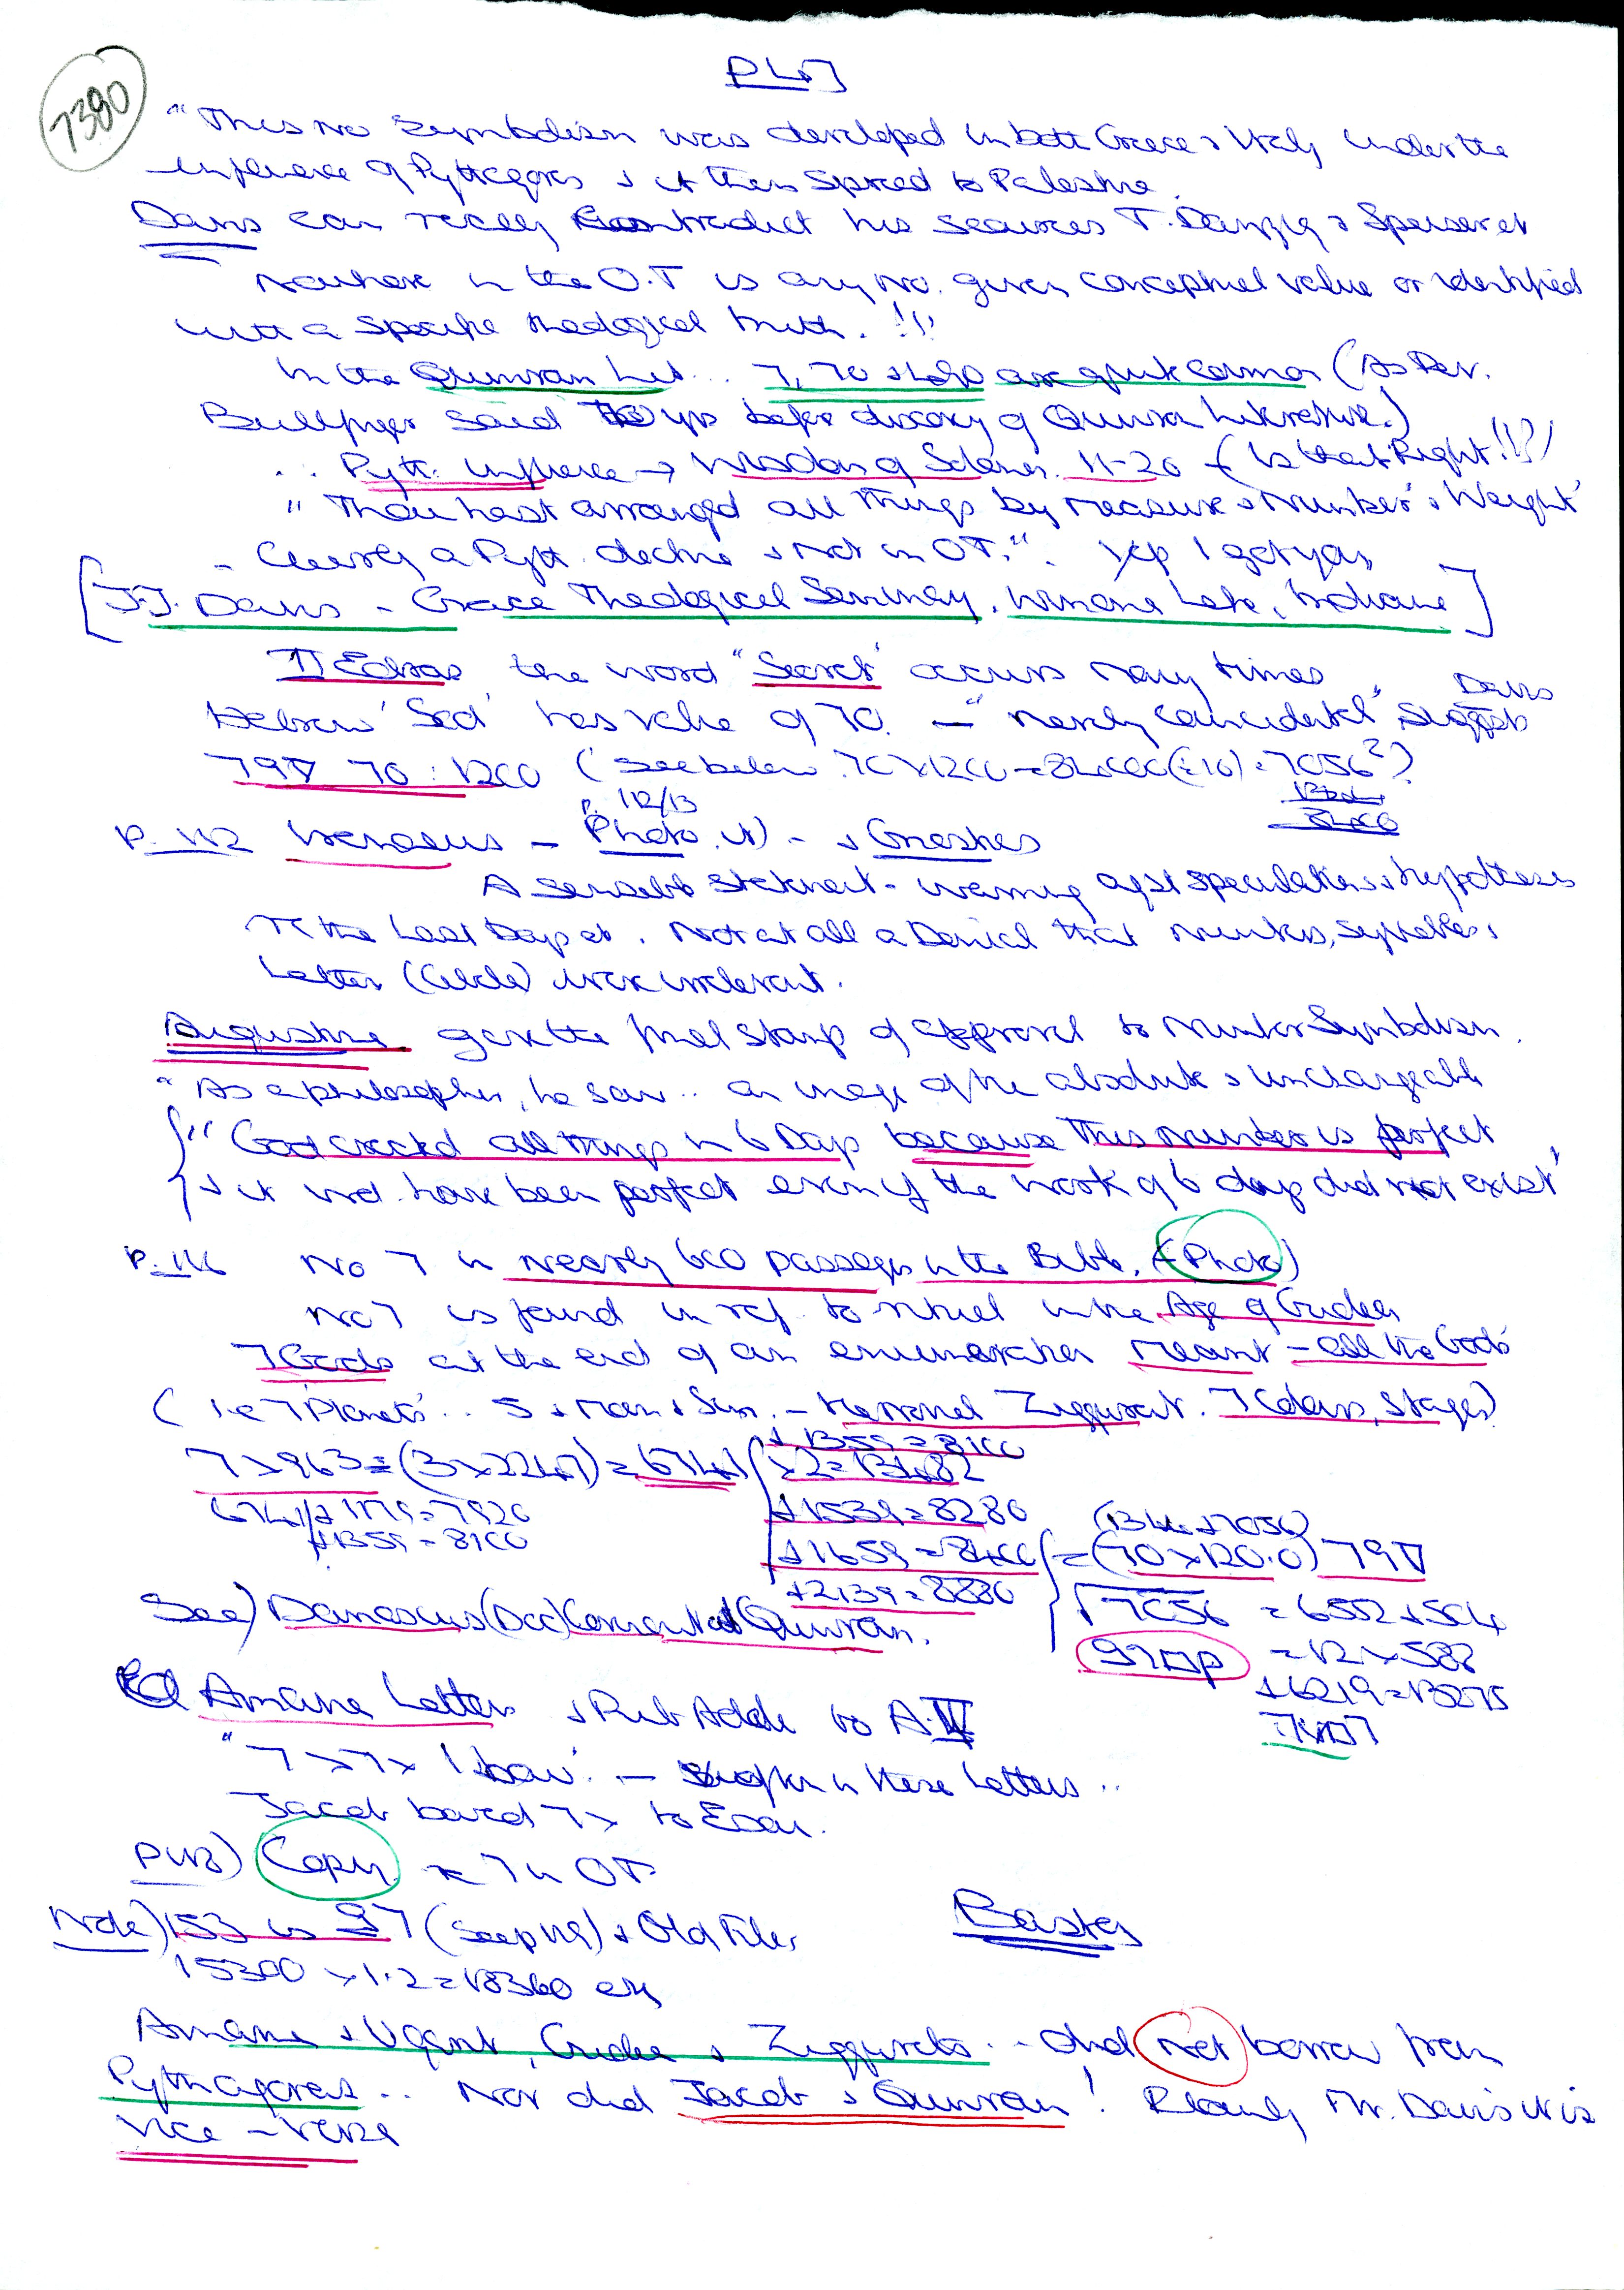 7380
"This No Symbolism was developed in both Greece & Italy under the
influence of Pythagoras & it then spread to Palestine.
Davis can really contradict his sources T. Danzig & Speiser et
Nowhere in the O.T is any No. given conceptual value or identified
with a specific theological truth. !!!
In the Qumran Lit... 7, 70 & are quite common (As Rev.
Bullinger said yrs before discovery of Qumran Literature.)
... Pyth. influence → Wisdom of Solomon. 11-20 (Is that Right!!?!
"Thou hast arranged all things by measure & Number & Weight"
- Clearly a Pyth. doctrine & Not in OT.". Yep I get you
[J.J. Davis - Grace Theological Seminary, Winona Lake, Indiana]
II Esdras the word "Secret" occurs many times
Hebrew 'Sod' has value of 70. — "merely coincidental", Davis suggests
70 : 1200 (see below 70 x 1200 = 84000 (÷10) = 7056²)
P. 112/13
P. 112 Irenaeus - Photo it) - & Gnostics
A sensible statement - warning agst speculations & hypotheses
re the Last Days et. Not at all a Denial that numbers, syllables &
Letters (Code) were irrelevant.
Augustine gave the final stamp of approval to Number Symbolism.
"As a philosopher, he saw .. an image of the absolute & unchangeable
"God created all things in 6 Days because this number is perfect
& it wd. have been perfect even if the work of 6 days did not exist"
P. 116 No 7 in nearly 600 passages in the Bible. (Photo)
No 7 is found in ref. to ritual in the Age of Gudea
7 Gods at the end of an enumeration meant - all the Gods
(i.e 7 Planets .. 5 & Moon & Sun. - National Ziggurat. 7 Colours, Stages)
+ 1359 = 8100
7 x 963 = (3 x 2247) = 6741 x 2 = 13482
6741 + 1179 = 7920
+ 1359 = 8100
+ 1539 = 8280
+ 1659 = 8400 = (70 x 120.0)
+ 2139 = 8880
√7056 = 6552 + 504
= 12 x 588
+ 6219 = 13275
See) Damascus (Doc) Covenant at Qumran.
Amarna Letters & Rib Adda to A.IV
"7 x 7 x I bow". — in these Letters ..
Jacob bowed 7 x to Esau.
P118) Copy re 7 in OT
Note) 153 is 97 (See p 119) & Old Files
15300 x 1.2 = 18360 etc
Bastey
Amarna & Ugarit, Gudea & Ziggurats.. - did not borrow from
Pythagoras .. Nor did Jacob & Qumran! Really Mr. Davis it is
vice - versa